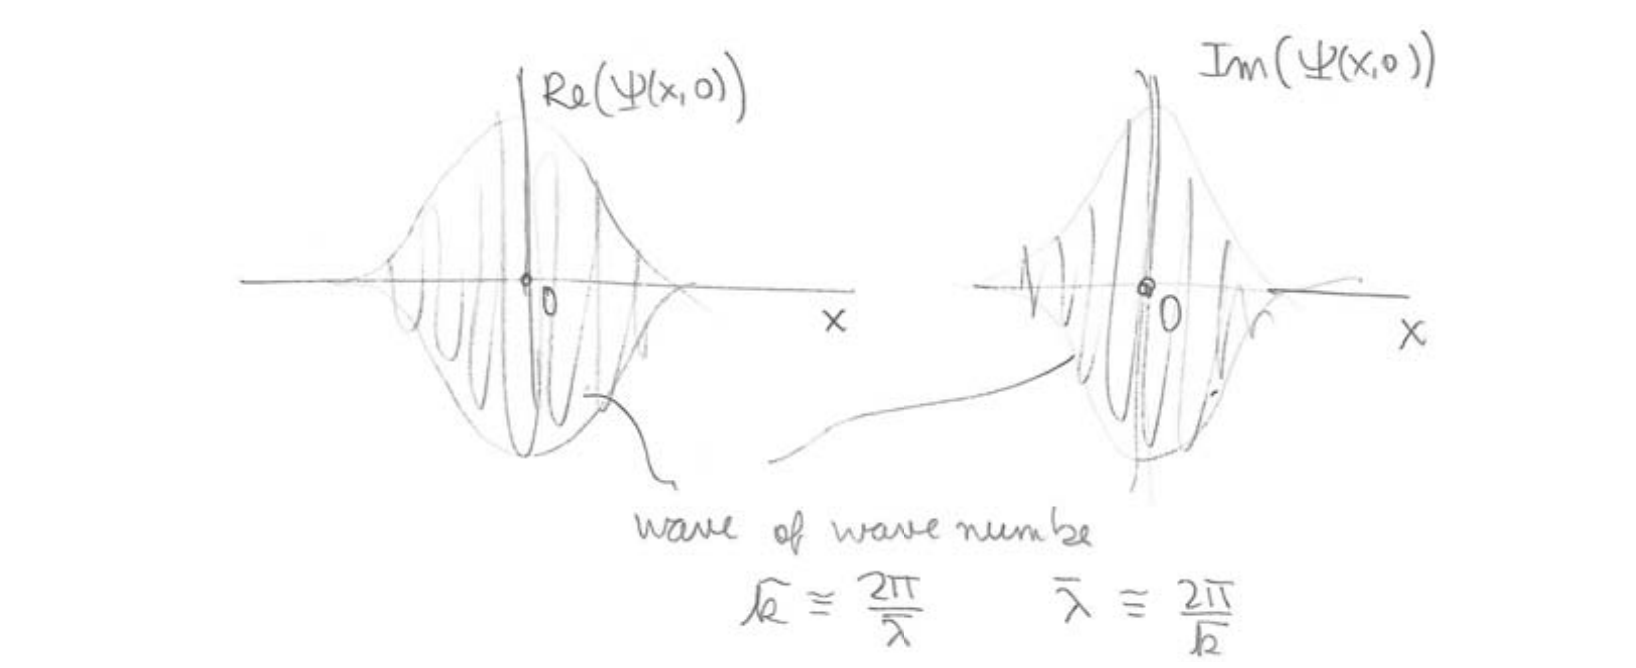 Re(Ψ(x,0))
Im(Ψ(x,0))
0
x
0
x
wave of wave numbe
k̄ ≡ 2π/λ̄
λ̄ ≡ 2π/k̄